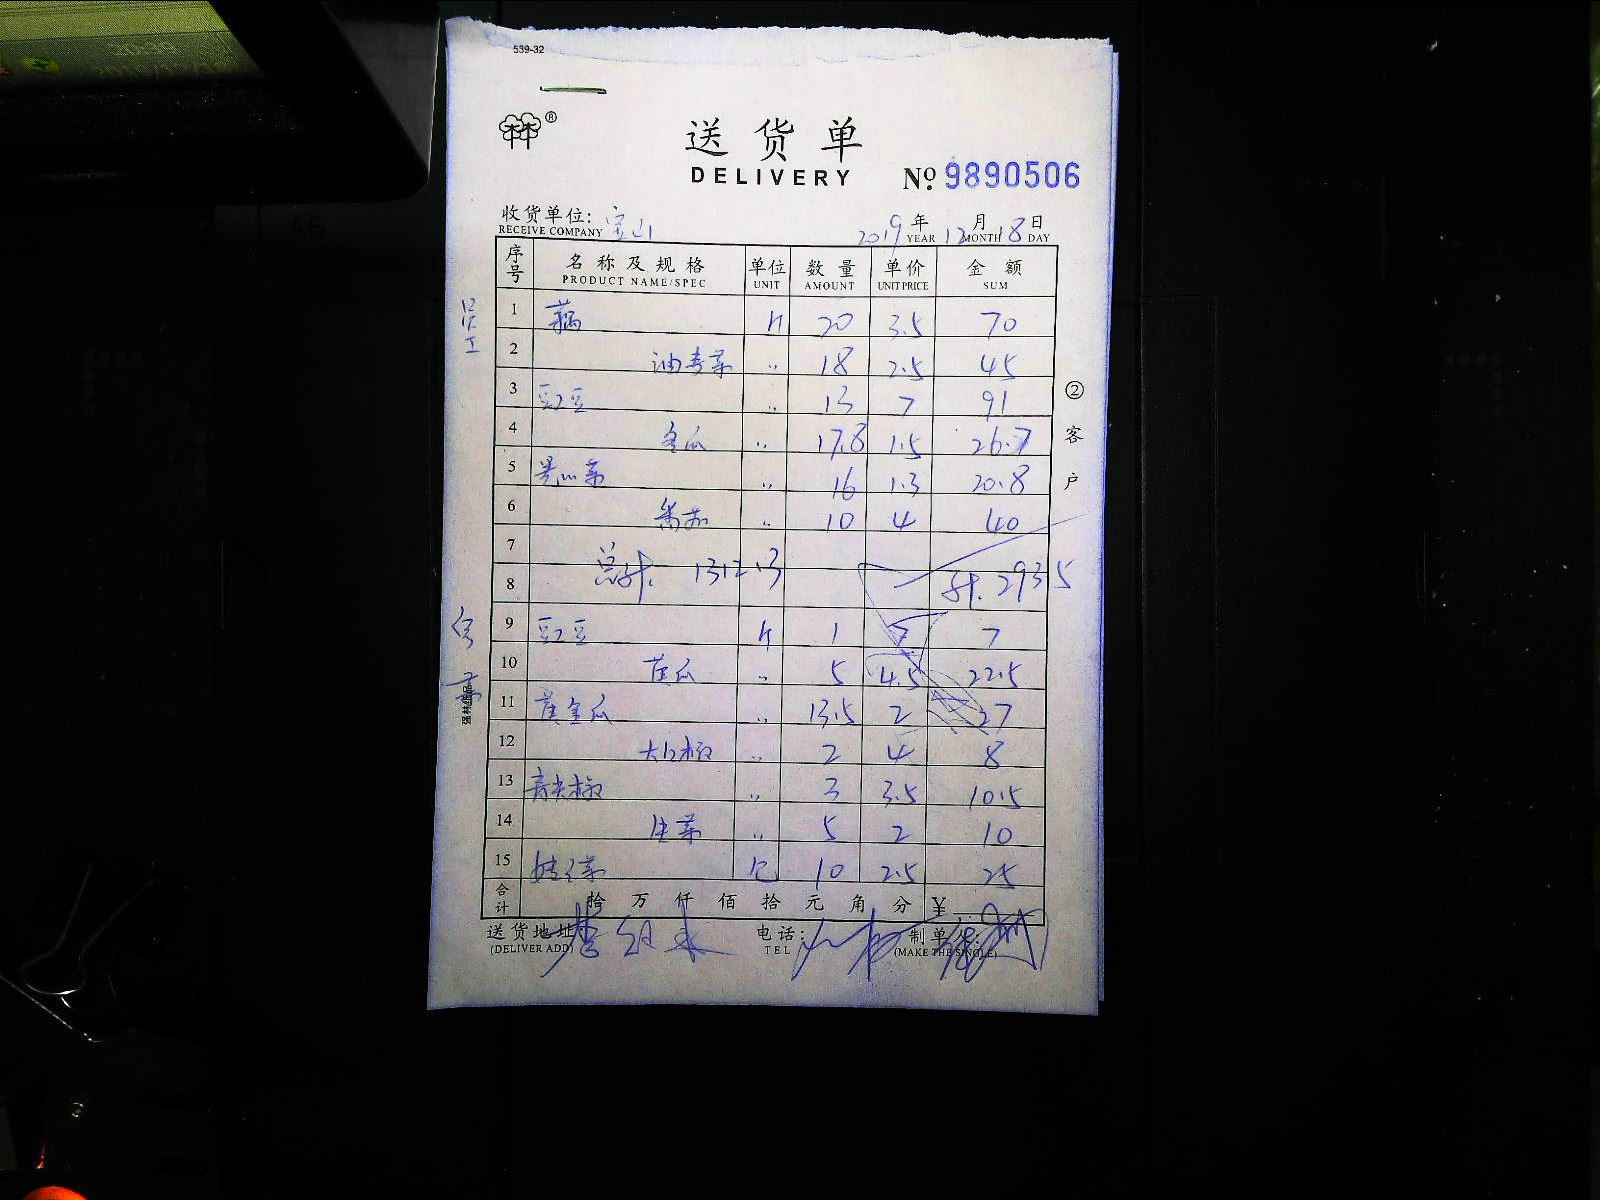 539-32
®
送货单
DELIVERY
Nº 9890506
收货单位: 宝山
RECEIVE COMPANY
2019 年 12 月 18 日
YEAR MONTH DAY
序号 名称及规格 单位 数量 单价 金额
PRODUCT NAME/SPEC UNIT AMOUNT UNIT PRICE SUM
1 藕 斤 20 3.5 70
2 油麦菜 〃 18 2.5 45
3 豇豆 〃 13 7 91
4 冬瓜 〃 17.8 1.5 26.7
5 〃 16 1.3 20.8
6 番茄 〃 10 4 40
7
8 总计. 计. 293.5
9 豇豆 斤 1 7 7
10 黄瓜 〃 5 4.5 22.5
11 黄金瓜 〃 13.5 2 27
12 大红椒 〃 2 4 8
13 青尖椒 〃 3 3.5 10.5
14 生菜 〃 5 2 10
15 娃娃菜 10 2.5 25
合计 拾 万 仟 佰 拾 元 角 分 ¥
送货地址: 电话: 制单人:
(DELIVER ADD) TEL (MAKE THE SINGLE)
②客户